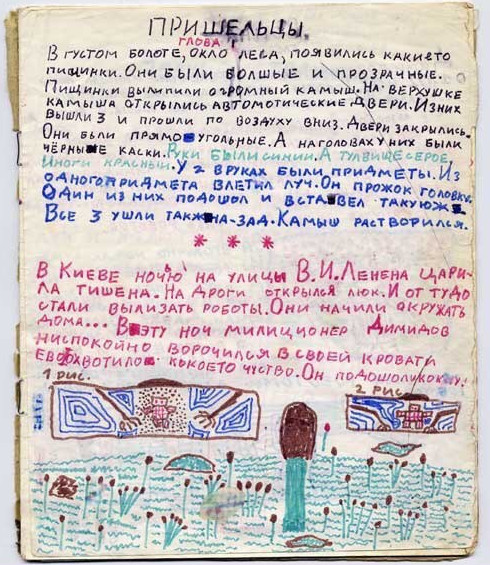 ПРИШЕЛЬЦЫ.
ГЛОВА 1
В ГУСТОМ БОЛОТЕ, ОКЛО ЛЕВА, ПОЯВИЛИСЬ КАКИЕТО
ПИЩИНКИ. ОНИ БЫЛИ БОЛШЫЕ И ПРОЗРАЧНЫЕ.
ПИЩИНКИ ВЫЛИПИЛИ ОГРОМНЫЙ КАМЫШ. НА ВЕРХУШКЕ
КАМЫША ОТКРЫЛИСЬ АВТОМОТИЧЕСКИЕ ДВЕРИ. ИЗ НИХ
ВЫШЛИ 3 И ПРОШЛИ ПО ВОЗДУХУ ВНИЗ. ДВЕРИ ЗАКРЫЛИСЬ.
ОНИ БЫЛИ ПРЯМОУГОЛЬНЫЕ. А НА ГОЛОВАХ У НИХ БЫЛИ
ЧЁРНЫЕ КАСКИ. РУКИ БЫЛИ СИНИИ. А ТУЛВИЩЕ СЕРОЕ,
НОГИ КРАСНЫЙ. У 2 В РУКАХ БЫЛИ ПРИДМЕТЫ. ИЗ
ОДНОГО ПРИДМЕТА ВЛЕТИЛ ЛУЧ. ОН ПРОЖОК ГОЛОВКУ.
ОДИН ИЗ НИХ ПОДОШОЛ И ВСТАВЕЛ ТАКУЮЖ.
ВСЕ 3 УШЛИ ТАКЖ НА-ЗАД. КАМЫШ РАСТВОРИЛСЯ.
* * *
В КИЕВЕ НОЧЬЮ НА УЛИЦЫ В.И. ЛЕНЕНА ЩАРИ-
ЛА ТИШЕНА. НА ДРОГИ ОТКРЫЛСЯ ЛЮК. И ОТ ТУДО
СТАЛИ ВЫЛИЗАТЬ РОБОТЫ. ОНИ НАЧИЛИ ОКРУЖАТЬ
ДОМА... В ЭТУ НОЧ МИЛИЦИОНЕР ДИМИДОВ
НИСПОКОЙНО ВОРОЧИЛСЯ В СВОЕЙ КРОВАТИ
ЕВО ОХВОТИЛО КОКОЕТО ЧУСТВО. ОН ПОДОШОЛ К ОКНУ.
1 РИС.
2 РИС.